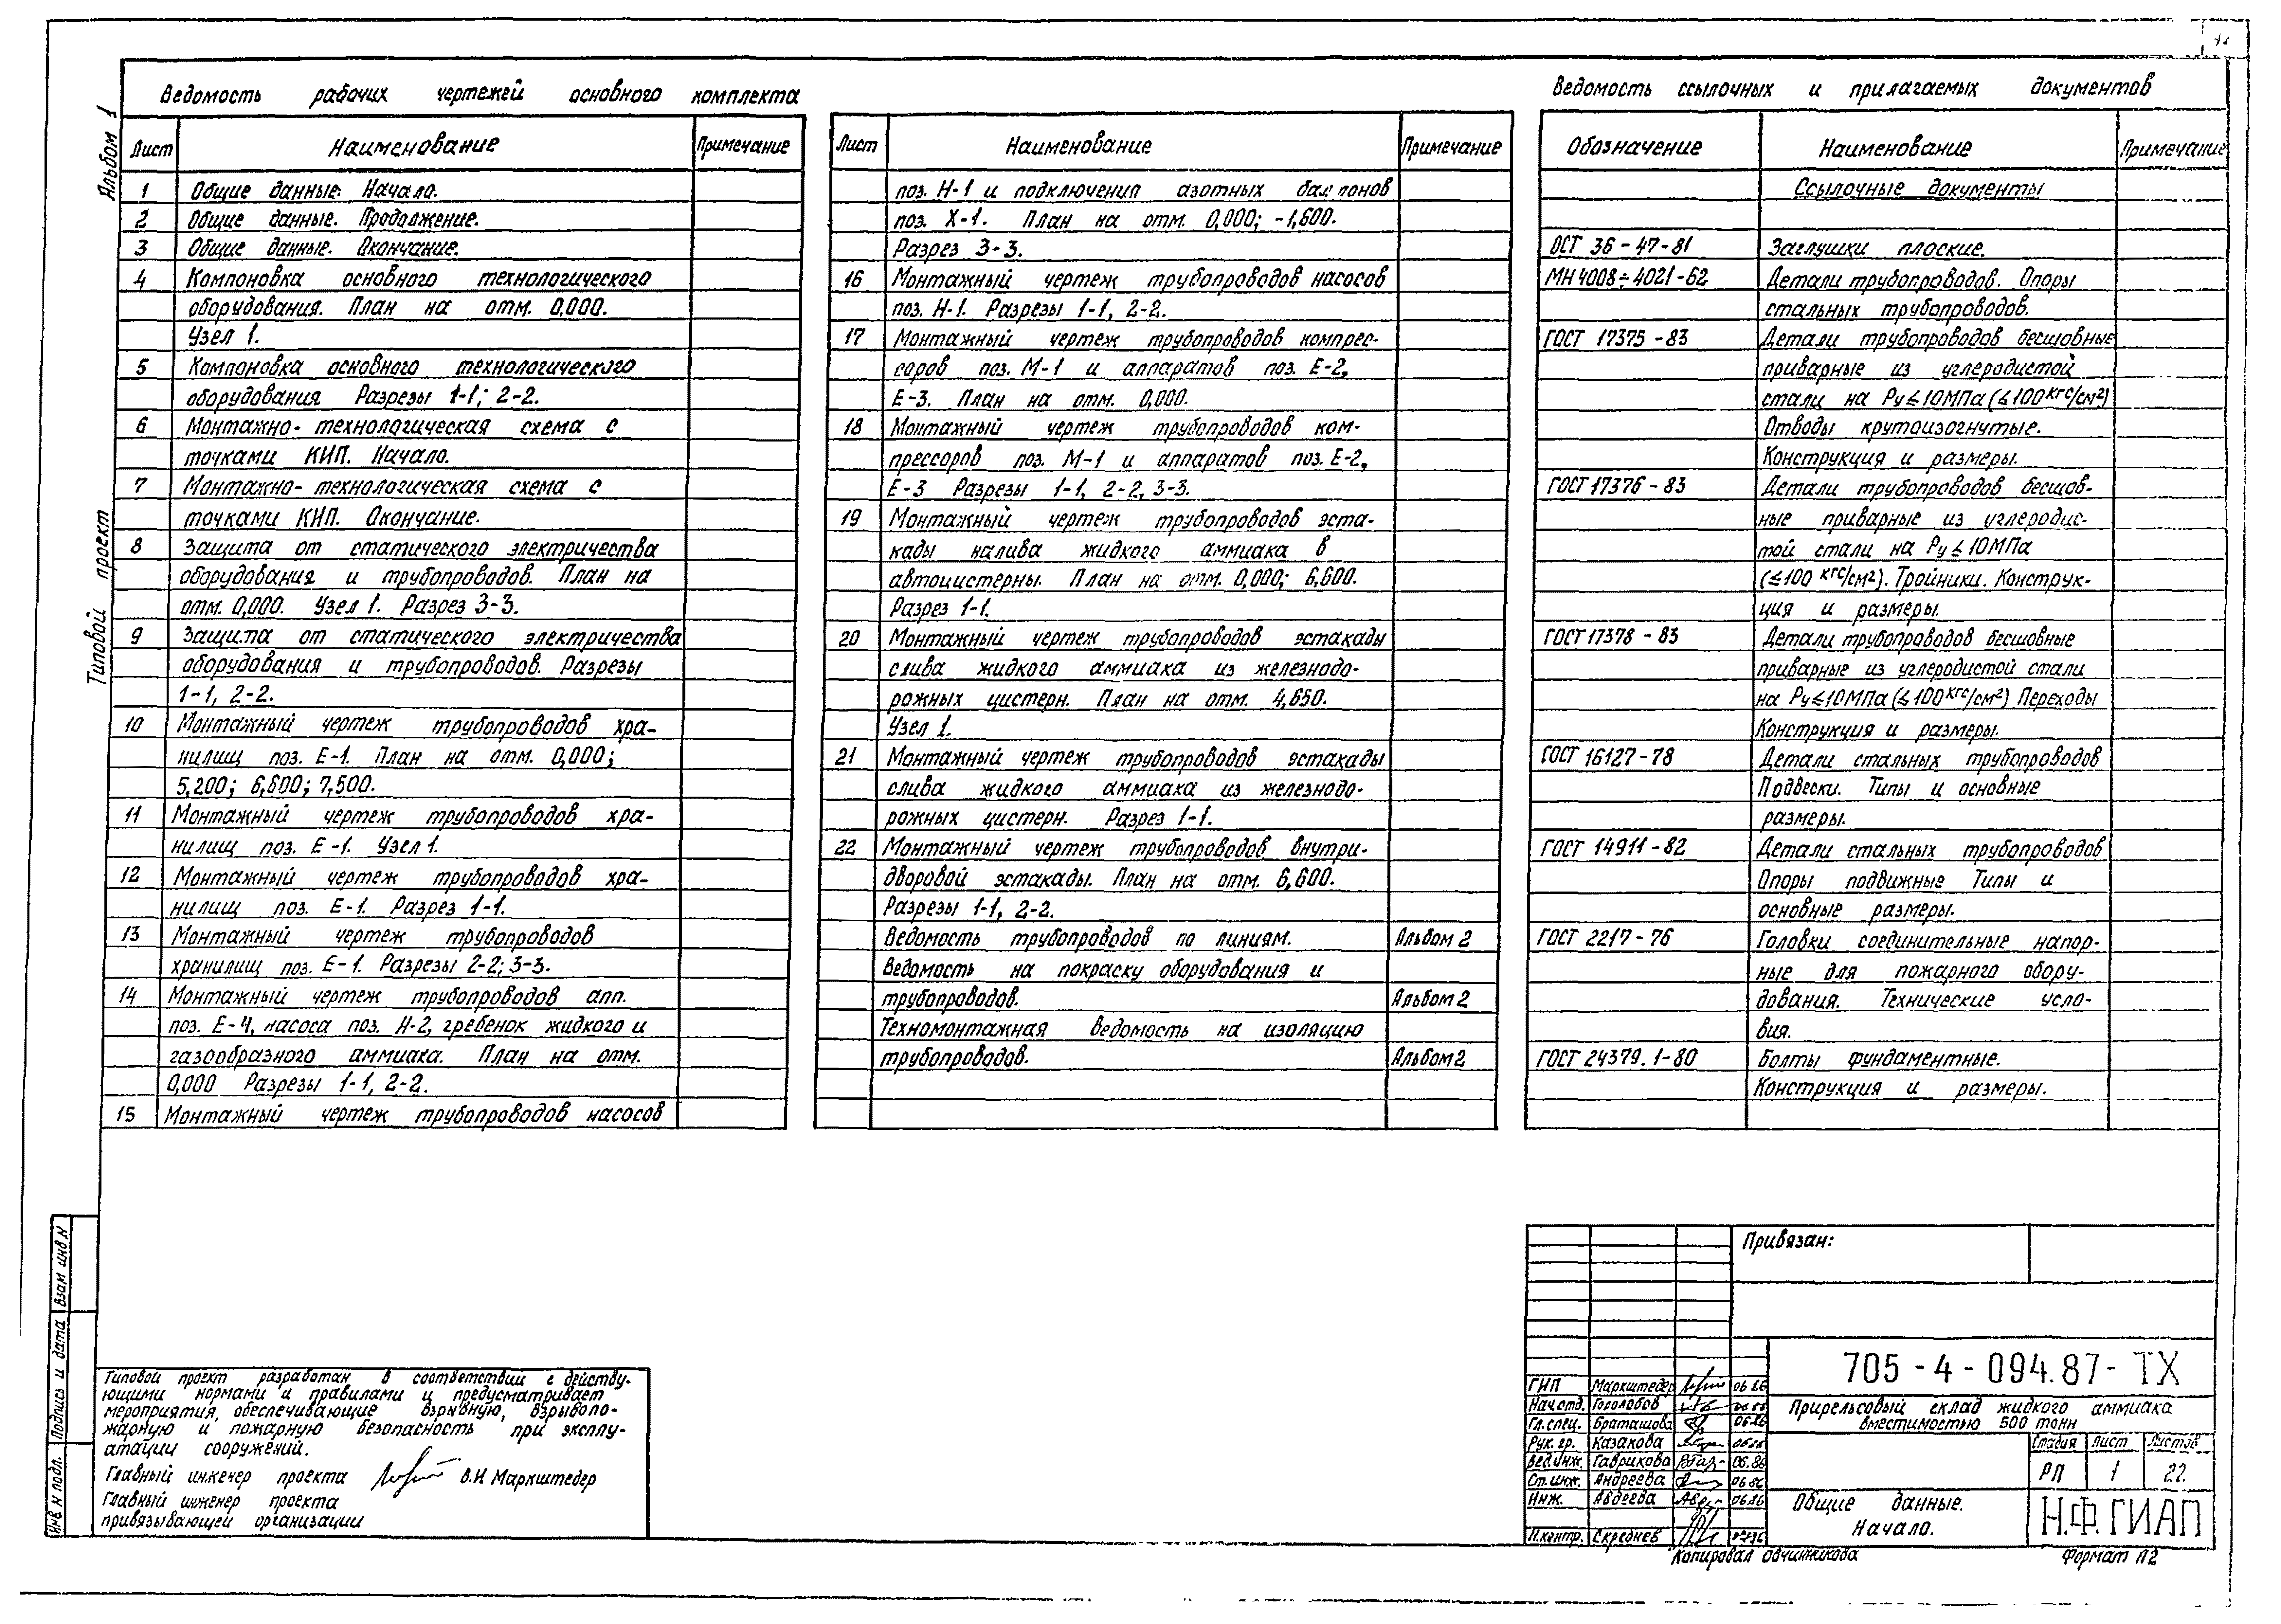 Альбом 1
Типовой проект
Ведомость рабочих чертежей основного комплекта
Лист Наименование Примечание
1 Общие данные. Начало.
2 Общие данные. Продолжение.
3 Общие данные. Окончание.
4 Компоновка основного технологического
оборудования. План на отм. 0,000.
Узел 1.
5 Компоновка основного технологического
оборудования Разрезы 1-1; 2-2.
6 Монтажно-технологическая схема с
точками КИП. Начало.
7 Монтажно-технологическая схема с
точками КИП. Окончание.
8 Защита от статического электричества
оборудования и трубопроводов. План на
отм. 0,000. Узел 1. Разрез 3-3.
9 Защита от статического электричества
оборудования и трубопроводов. Разрезы
1-1, 2-2.
10 Монтажный чертеж трубопроводов хра-
нилищ поз. Е-1. План на отм. 0,000;
5,200; 6,600; 7,500.
11 Монтажный чертеж трубопроводов хра-
нилищ поз. Е-1. Узел 1.
12 Монтажный чертеж трубопроводов хра-
нилищ поз. Е-1. Разрез 1-1.
13 Монтажный чертеж трубопроводов
хранилищ поз. Е-1. Разрезы 2-2; 3-3.
14 Монтажный чертеж трубопроводов апп.
поз. Е-4, насоса поз. Н-2, гребенок жидкого и
газообразного аммиака. План на отм.
0,000 Разрезы 1-1, 2-2.
15 Монтажный чертеж трубопроводов насосов
Лист Наименование Примечание
поз. Н-1 и подключения азотных баллонов
поз. Х-1. План на отм. 0,000; -1,600.
Разрез 3-3.
16 Монтажный чертеж трубопроводов насосов
поз. Н-1. Разрезы 1-1, 2-2.
17 Монтажный чертеж трубопроводов компрес-
соров поз. М-1 и аппаратов поз. Е-2,
Е-3. План на отм. 0,000.
18 Монтажный чертеж трубопроводов ком-
прессоров поз. М-1 и аппаратов поз. Е-2,
Е-3 Разрезы 1-1, 2-2, 3-3.
19 Монтажный чертеж трубопроводов эста-
кады налива жидкого аммиака в
автоцистерны. План на отм. 0,000; 6,600.
Разрез 1-1.
20 Монтажный чертеж трубопроводов эстакады
слива жидкого аммиака из железнодо-
рожных цистерн. План на отм. 4,650.
Узел 1.
21 Монтажный чертеж трубопроводов эстакады
слива жидкого аммиака из железнодо-
рожных цистерн. Разрез 1-1.
22 Монтажный чертеж трубопроводов внутри-
дворовой эстакады. План на отм. 6,600.
Разрезы 1-1, 2-2.
Ведомость трубопроводов по линиям. Альбом 2
Ведомость на покраску оборудования и
трубопроводов. Альбом 2
Техномонтажная ведомость на изоляцию
трубопроводов. Альбом 2
Ведомость ссылочных и прилагаемых документов
Обозначение Наименование Примечание
Ссылочные документы
ОСТ 36-47-81 Заглушки плоские.
МН 4008÷4021-62 Детали трубопроводов. Опоры
стальных трубопроводов.
ГОСТ 17375-83 Детали трубопроводов бесшовные
приварные из углеродистой
стали на Ру≤10МПа (≤100кгс/см²)
Отводы крутоизогнутые.
Конструкция и размеры.
ГОСТ 17376-83 Детали трубопроводов бесшов-
ные приварные из углеродис-
той стали на Ру≤10МПа
(≤100 кгс/см²). Тройники. Конструк-
ция и размеры.
ГОСТ 17378-83 Детали трубопроводов бесшовные
приварные из углеродистой стали
на Ру≤10МПа (≤100кгс/см²) Переходы
Конструкция и размеры.
ГОСТ 16127-78 Детали стальных трубопроводов
Подвески. Типы и основные
размеры.
ГОСТ 14911-82 Детали стальных трубопроводов
Опоры подвижные Типы и
основные размеры.
ГОСТ 2217-76 Головки соединительные напор-
ные для пожарного обору-
дования. Технические усло-
вия.
ГОСТ 24379.1-80 Болты фундаментные.
Конструкция и размеры.
Взам инв N
Подпись и дата
Инв N подл.
Типовой проект разработан в соответствии с действу-
ющими нормами и правилами и предусматривает
мероприятия, обеспечивающие взрывную, взрывопо-
жарную и пожарную безопасность при эксплу-
атации сооружений.
Главный инженер проекта В.И Маркштедер
Главный инженер проекта
привязывающей организации
Привязан:
705-4-094.87-ТХ
ГИП Маркштедер 06.86
Нач.отд. Горолобов
Гл.спец. Браташова 06.86
Рук. гр. Казакова
Вед.инж. Гаврикова 06.86
Ст. инж. Андреева 06.86
Инж. Авдеева 06.86
Н.контр. Скреднев
Прирельсовый склад жидкого аммиака
вместимостью 500 тонн
Стадия Лист Листов
РП 1 22
Общие данные.
Начало.
Н.Ф.ГИАП
Копировал Овчинникова
Формат А2